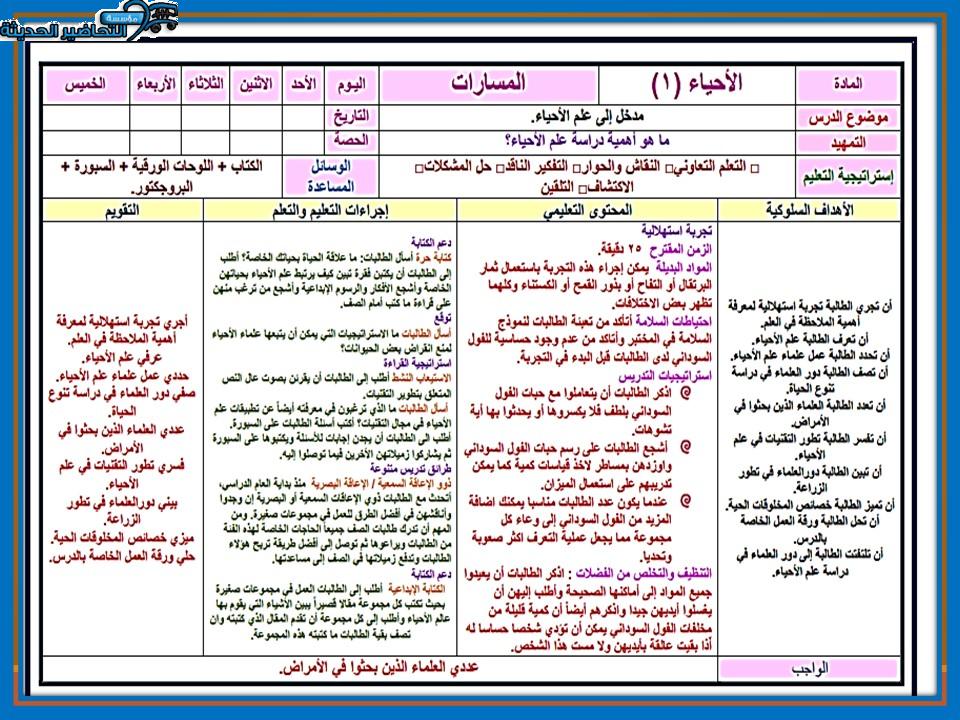 مؤسسة
التحاضير الحديثة
المادة
الأحياء (١)
المسارات
اليوم
الأحد
الاثنين
الثلاثاء
الأربعاء
الخميس
موضوع الدرس
مدخل إلى علم الأحياء.
التاريخ
التمهيد
ما هو أهمية دراسة علم الأحياء؟
الحصة
إستراتيجية التعليم
□ التعلم التعاوني□ النقاش والحوار□ التفكير الناقد□ حل المشكلات□
الاكتشاف□ التلقين
الوسائل
المساعدة
الكتاب + اللوحات الورقية + السبورة +
البروجكتور.
الأهداف السلوكية
المحتوى التعليمي
إجراءات التعليم والتعلم
التقويم
أن تجري الطالبة تجربة استهلالية لمعرفة
أهمية الملاحظة في العلم.
أن تعرف الطالبة علم الأحياء.
أن تحدد الطالبة عمل علماء علم الأحياء.
أن تصف الطالبة دور العلماء في دراسة
تنوع الحياة.
أن تعدد الطالبة العلماء الذين بحثوا في
الأمراض.
أن تفسر الطالبة تطور التقنيات في علم
الأحياء.
أن تبين الطالبة دورالعلماء في تطور
الزراعة.
أن تميز الطالبة خصائص المخلوقات الحية.
أن تحل الطالبة ورقة العمل الخاصة
بالدرس.
أن تلتفتت الطالبة إلى دور العلماء في
دراسة علم الأحياء.
تجربة استهلالية
الزمن المقترح ٢٥ دقيقة.
المواد البديلة يمكن إجراء هذه التجربة باستعمال ثمار
البرتقال أو التفاح أو بذور القمح أو الكستناء وكلهما
تظهر بعض الاختلافات.
احتياطات السلامة أتأكد من تعبئة الطالبات لنموذج
السلامة في المختبر وأتاكد من عدم وجود حساسية للفول
السوداني لدى الطالبات قبل البدء في التجربة.
استراتيجيات التدريس
اذكر الطالبات أن يتعاملوا مع حبات الفول
السوداني بلطف فلا يكسروها أو يحدثوا بها أية
تشوهات.
أشجع الطالبات على رسم حبات الفول السوداني
واوزدهن بمساطر لاخذ قياسات كمية كما يمكن
تدريبهم على استعمال الميزان.
عندما يكون عدد الطالبات مناسبا يمكنك اضافة
المزيد من الفول السوداني إلى وعاء كل
مجموعة مما يجعل عملية التعرف اكثر صعوبة
وتحديا.
التنظيف والتخلص من الفضلات : اذكر الطالبات أن يعيدوا
جميع المواد إلى أماكنها الصحيحة وأطلب إليهن أن
يغسلوا أيديهن جيدا واذكرهم أيضاً أن كمية قليلة من
مخلفات الفول السوداني يمكن أن تؤدي شخصا حساسا له
أذا بقيت عالقة بأيديهن ولا مست هذا الشخص.
دعم الكتابة
كتابة حرة أسأل الطالبات: ما علاقة الحياة بحياتك الخاصة؟ أطلب
إلى الطالبات أن يكتبن فقرة تبين كيف يرتبط علم الأحياء بحياتهن
الخاصة وأشجع الأفكار والرسوم الإبداعية وأشجع من ترغب منهن
على قراءة ما كتب أمام الصف.
توقع
أسأل الطالبات ما الاستراتيجيات التي يمكن أن يتبعها علماء الأحياء
لمنع انقراض بعض الحيوانات؟
استراتيجية القراءة
الاستيعاب النشط أطلب إلى الطالبات أن يقرئن بصوت عال النص
المتعلق بتطوير التقنيات.
أسأل الطالبات ما الذي ترغبون في معرفته أيضاً عن تطبيقات علم
الأحياء في مجال التقنيات؟ أكتب أسئلة الطالبات على السبورة.
أطلب الى الطالبات أن يجدن إجابات للأسئلة ويكتبوها على السبورة
ثم يشاركوا زميلاتهن الأخرين فيما توصلوا إليه.
طرائق تدريس متنوعة
ذوو الإعاقة السمعية / الإعاقة البصرية منذ بداية العام الدراسي،
أتحدث مع الطالبات ذوي الإعاقات السمعية أو البصرية إن وجدوا
وأناقشهن في أفضل الطرق للعمل في مجموعات صغيرة. ومن
المهم أن تدرك طالبات الصف جميعاً الحاجات الخاصة لهذه الفئة
من الطالبات ويراعوها ثم توصل إلى أفضل طريقة تريح هؤلاء
الطالبات وتدفع زميلاتها في الصف إلى مساعدتها.
دعم الكتابة
الكتابة الإبداعية أطلب إلى الطالبات العمل في مجموعات صغيرة
بحيث تكتب كل مجموعة مقالا قصيراً يبين الأشياء التي يقوم بها
عالم الأحياء وأطلب إلى كل مجموعة أن تقدم المقال الذي كتبته وان
تصف بقية الطالبات ما كتبته هذه المجموعة.
أجري تجربة استهلالية لمعرفة
أهمية الملاحظة في العلم.
عرفي علم الأحياء.
حددي عمل علماء علم الأحياء.
صفي دور العلماء في دراسة تنوع
الحياة.
عددي العلماء الذين بحثوا في
الأمراض.
فسري تطور التقنيات في علم
الأحياء.
بيني دورالعلماء في تطور
الزراعة.
ميزي خصائص المخلوقات الحية.
حلي ورقة العمل الخاصة بالدرس.
الواجب
عددي العلماء الذين بحثوا في الأمراض.